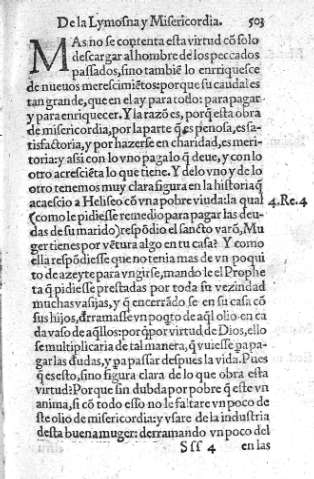 De la Lymosna y Misericordia. 503
MAs no se contenta esta virtud cõ solo
descargar al hombre de los peccados
passados, sino tambiẽ lo enrriquesce
de nueuos merescimiẽtos: porque su caudal es
tan grande, que en el ay para todo: para pagar
y para enriquecer. Y la razõ es, porq̃ esta obra
de misericordia, por la parte q̃ es penosa, es sa-
tisfactoria, y por hazerse en charidad, es meri-
toria: y assi con lo vno paga lo q̃ deue, y con lo
otro acresciẽta lo que tiene. Y de lo vno y de lo
otro tenemos muy clara figura en la historia q̃
acaescio a Heliseo cõ vna pobre viuda: la qual 4. Re. 4
(como le pidiesse remedio para pagar las deu-
das de su marido) respõdio el sancto varõ, Mu
ger tienes por vẽtura algo en tu casa? Y como
ella respõdiesse que no tenia mas de vn poqui
to de azeyte para vngirse, mando le el Prophe
ta q̃ pidiesse prestadas por toda su vezindad
muchas vasijas, y q̃ encerrãdo se en su casa cõ
sus hijos, derramasse vn poq̃to de aq̃l olio en ca
da vaso de aq̃llos: porq̃ por virtud de Dios, ello
se multiplicaria de tal manera, q̃ vuiesse pa pa-
gar las d'udas, y pa passar despues la vida. Pues
q̃ es esto, sino figura clara de lo que obra esta
virtud? Porque sin dubda por pobre q̃ este vn
anima, si cõ todo esso no le faltare vn poco de
ste olio de misericordia: y vsare de la industria
desta buena muger: derramando vn poco del
Sss 4 en las